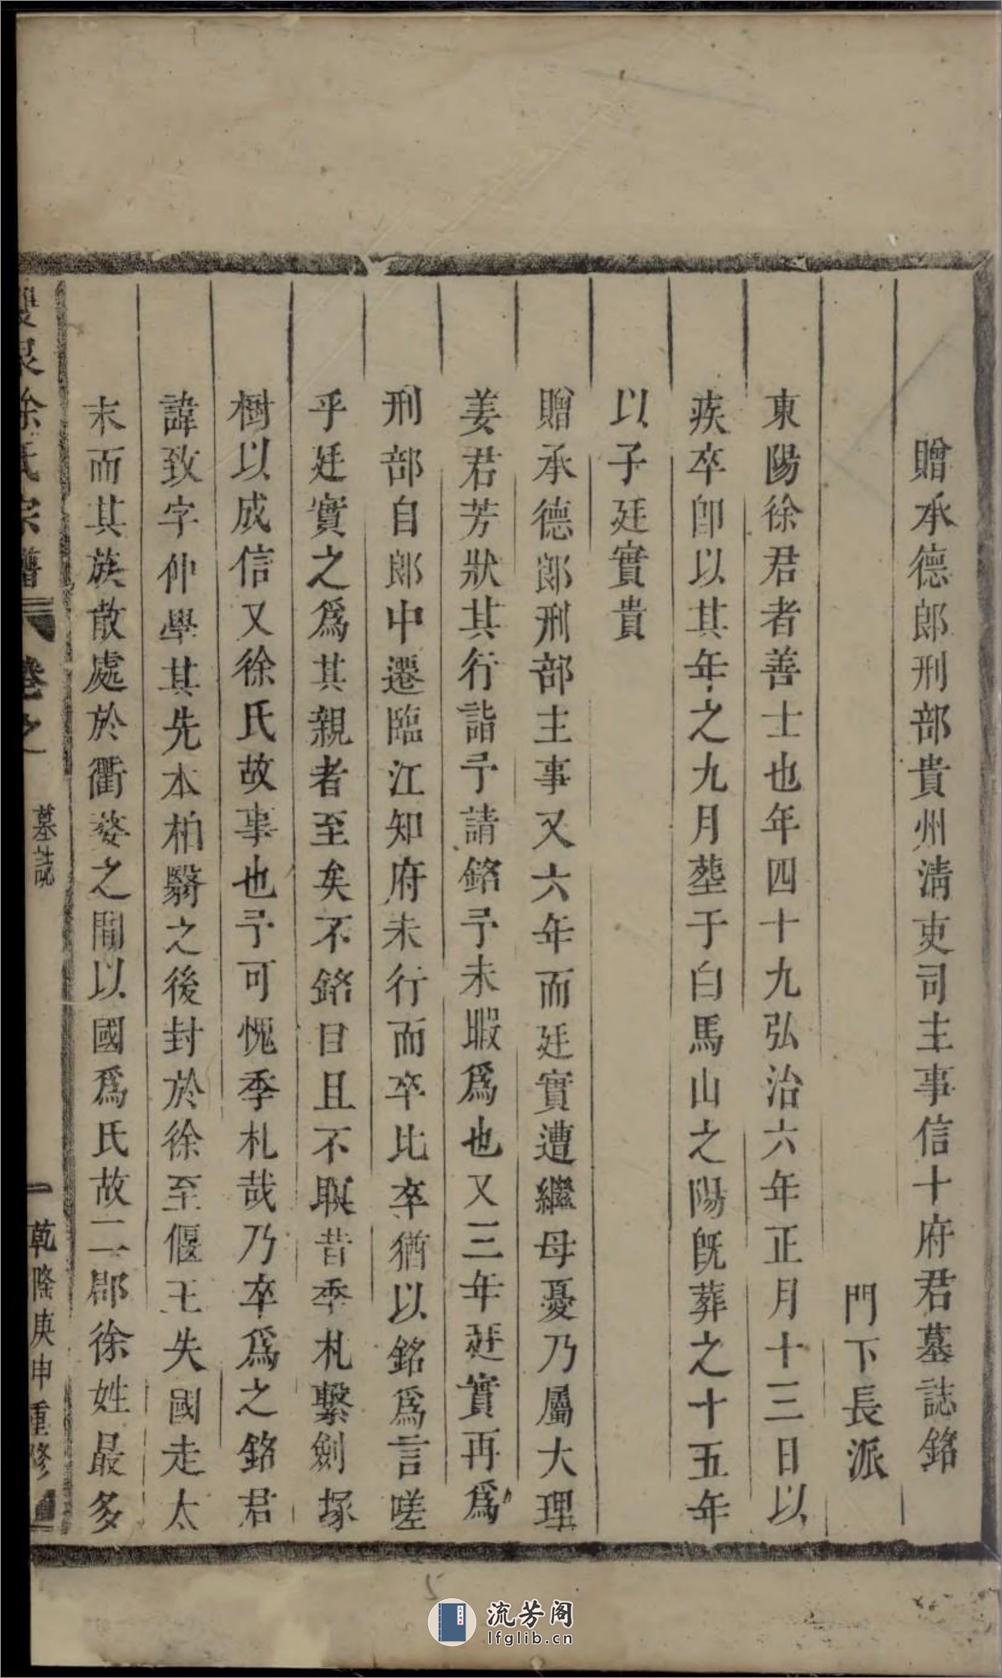 贈承德郎刑部貴州淸吏司主事信十府君墓誌銘
門下長派
東陽徐君者善士也年四十九弘治六年正月十三日以
疾卒卽以其年之九月塟于白馬山之陽旣葬之十五年
以子廷實貴
贈承德郎刑部主事又六年而廷實遭繼母憂乃屬大理
姜君芳狀其行詣予請銘予未暇爲也又三年廷實再爲
刑部自郎中遷臨江知府未行而卒比卒猶以銘爲言嗟
乎廷實之爲其親者至矣不銘目且不瞑昔季札繫劍塚
樹以成信又徐氏故事也予可愧季札哉乃卒爲之銘君
諱致字仲學其先本柏翳之後封於徐至偃王失國走太
末而其族散處於衢婺之間以國爲氏故二郡徐姓最多
雙泉徐氏宗譜
卷之
墓誌
一
乾隆庚申重修
5
流芳阁
lfglib.cn